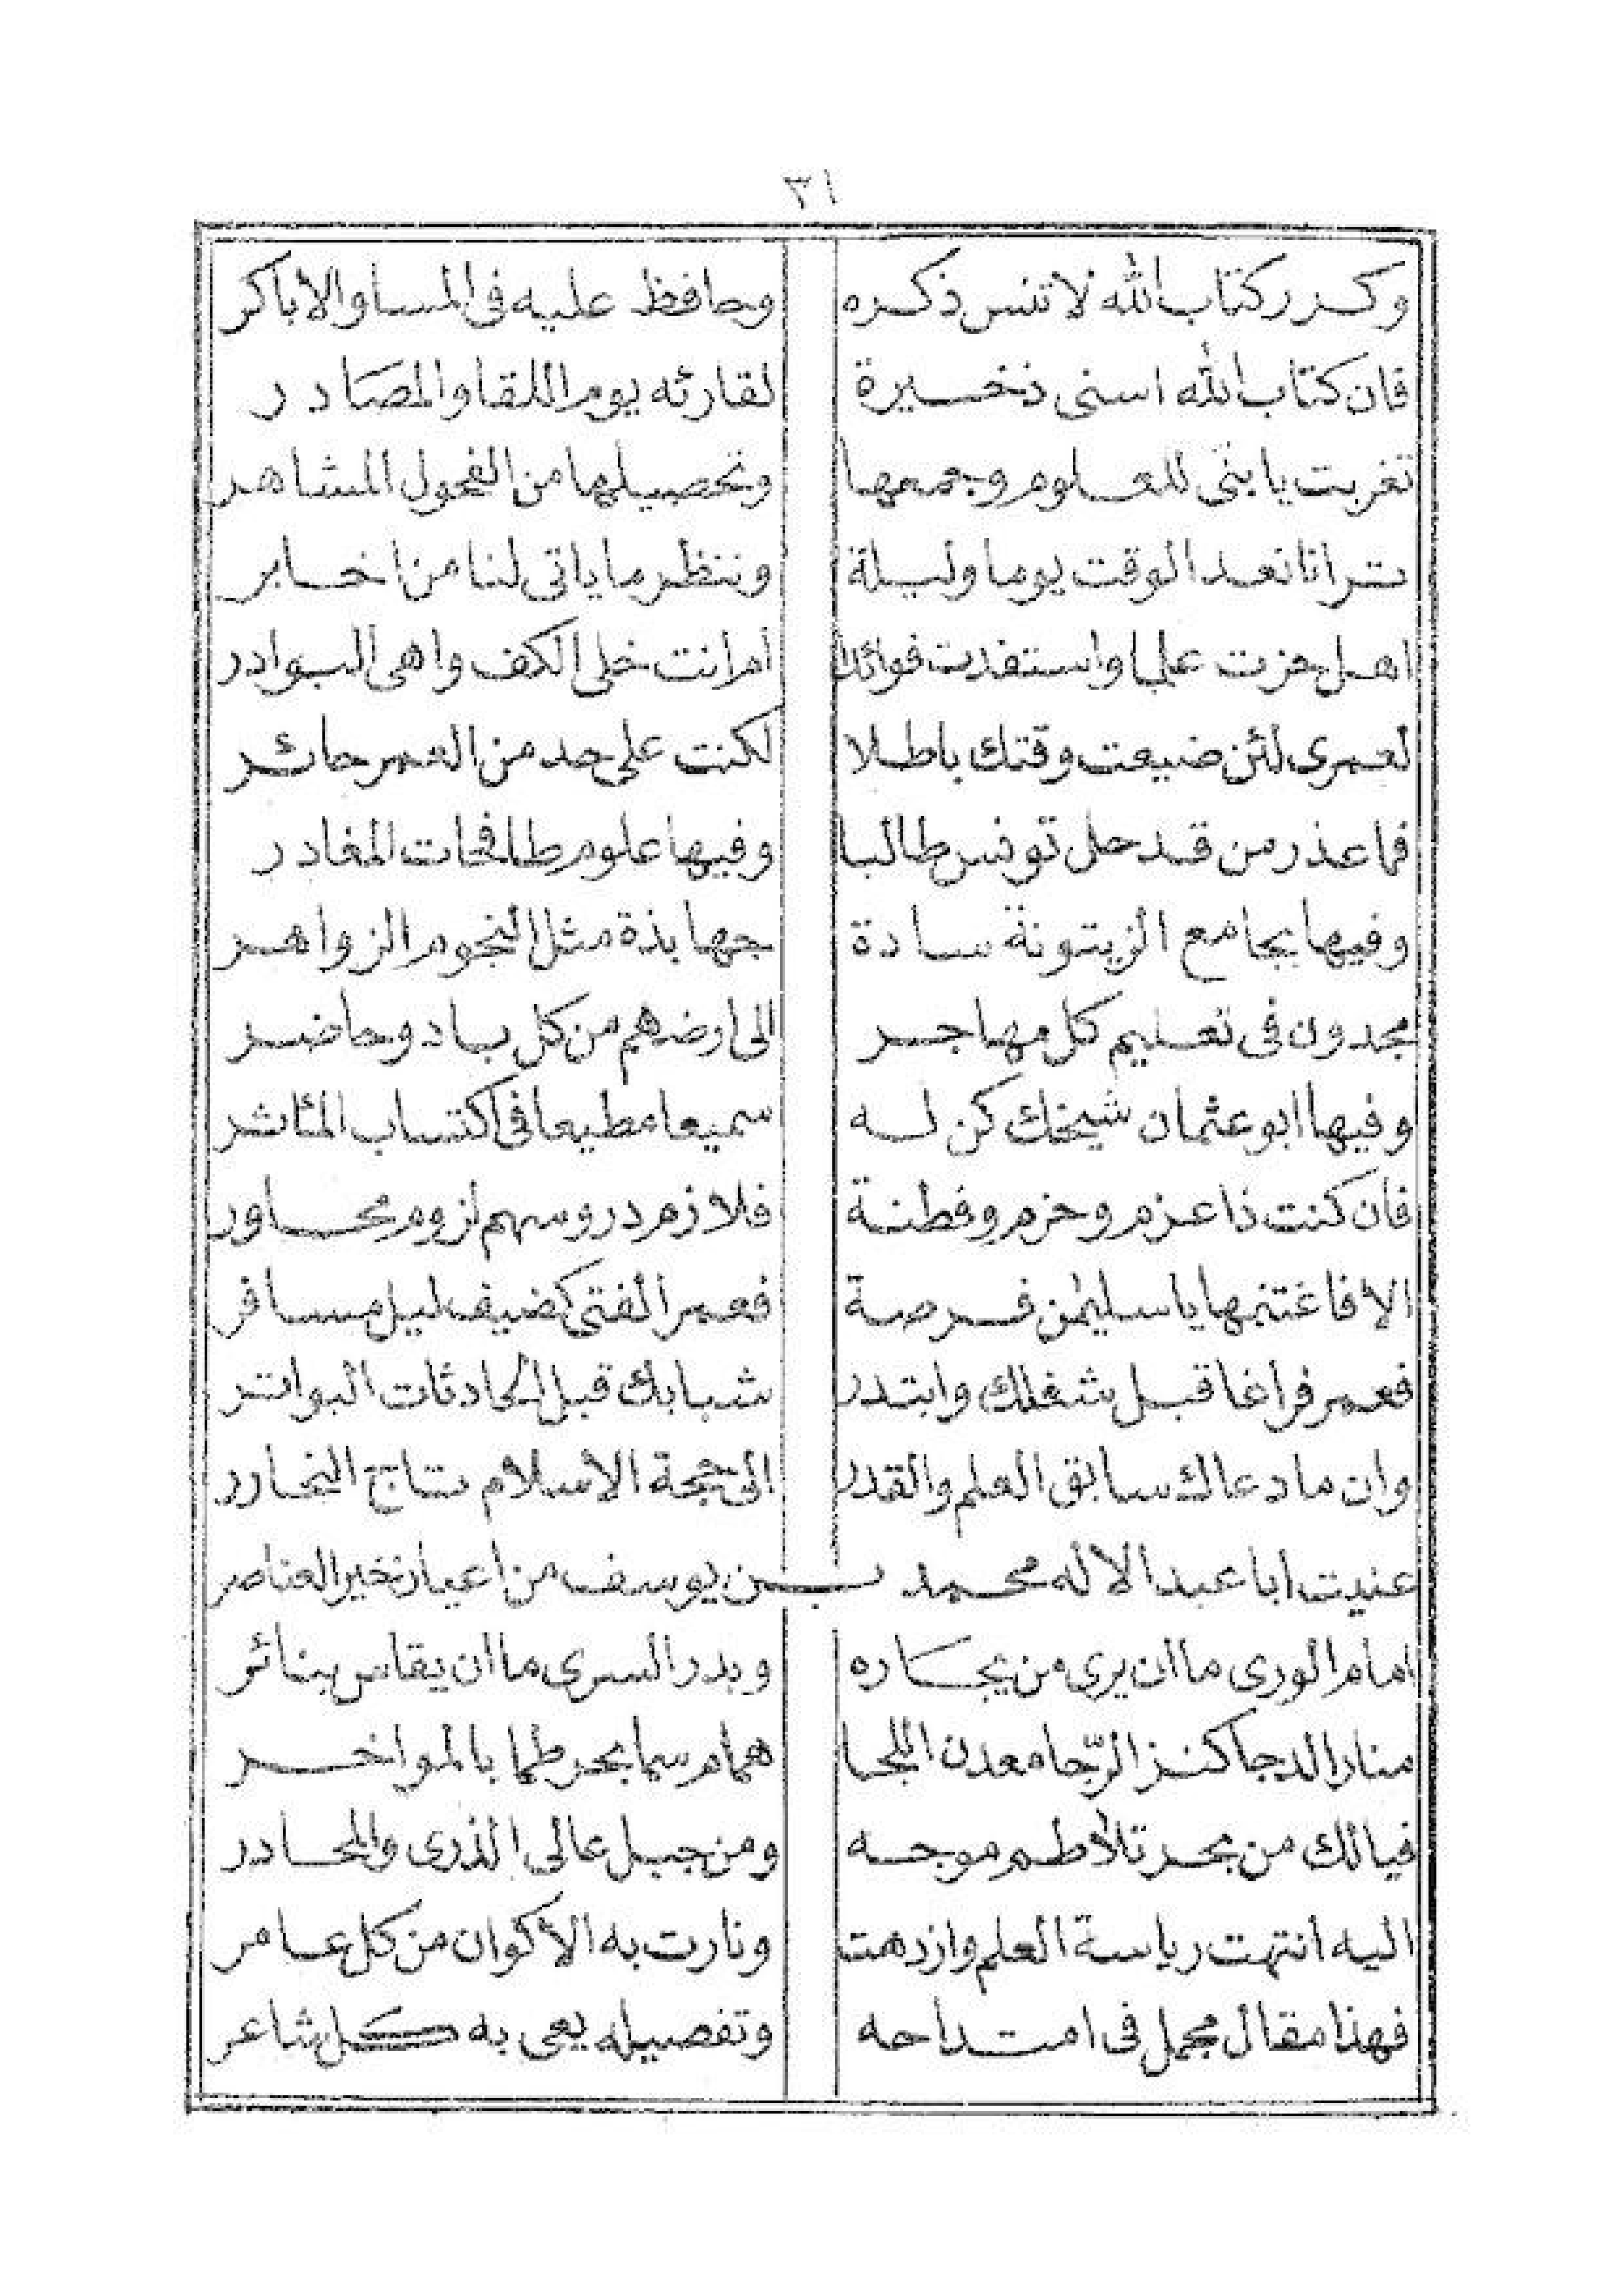 ٣١
وكرر كتاب الله لا تنس ذكره وحافظ عليه فى المسا والاباكر
فان كتاب الله اسنى ذخيرة لقارئه يوم اللقا والمصادر
تغربت يا بنى للعلوم وجمعها وتحصيلها من الفحول المشاهر
ترانا نعد الوقت يوما وليلة وننظر ما ياتى لنا من اخابر
اهل حزت علما واستفدت فوائدا ام انت خلى الكف واهى البوادر
لعمرى لئن ضيعت وقتك باطلا لكنت على حد من العمر حائر
فما عذر من قد حل تونس طالبا وفيها علوم طافحات المغادر
وفيها بجامع الزيتونة سادة جهابذة مثل النجوم الزواهر
مجدون فى تعليم كل مهاجر الى ارضهم من كل باد وحاضر
وفيها ابو عثمان شيخك كن له سميعا مطيعا فى اكتساب المئاثر
فان كنت ذا عزم وحزم وفطنة فلازم دروسهم لزوم محاور
الا فاغتنمها يا سليمٰن فرصة فعمر الفتى كضيف ليل مسافر
فعمر فراغا قبل شغلك وابتدر شبابك قبل الحادثات البواتر
وان ما دعاك سابق العلم والقدر الى حجة الاسلام تاج النحارر
عنيت ابا عبد الاله محمد بن يوسف من اعيان خير العناصر
امام الورى ما ان يرى من يجاره وبدر السرى ما ان يقاس بنائر
منار الدجا كنز الرّجا معدن اللجا همام سما بحر طما بالمواخر
فيالك من بحر تلاطم موجه ومن جبل عالى الذرى والمحادر
اليه انتهت رياسة العلم وازدهت ونارت به الأكوان من كل عامر
فهذا مقال مجمل فى امتداحه وتفصيله يعى به كل شاعر